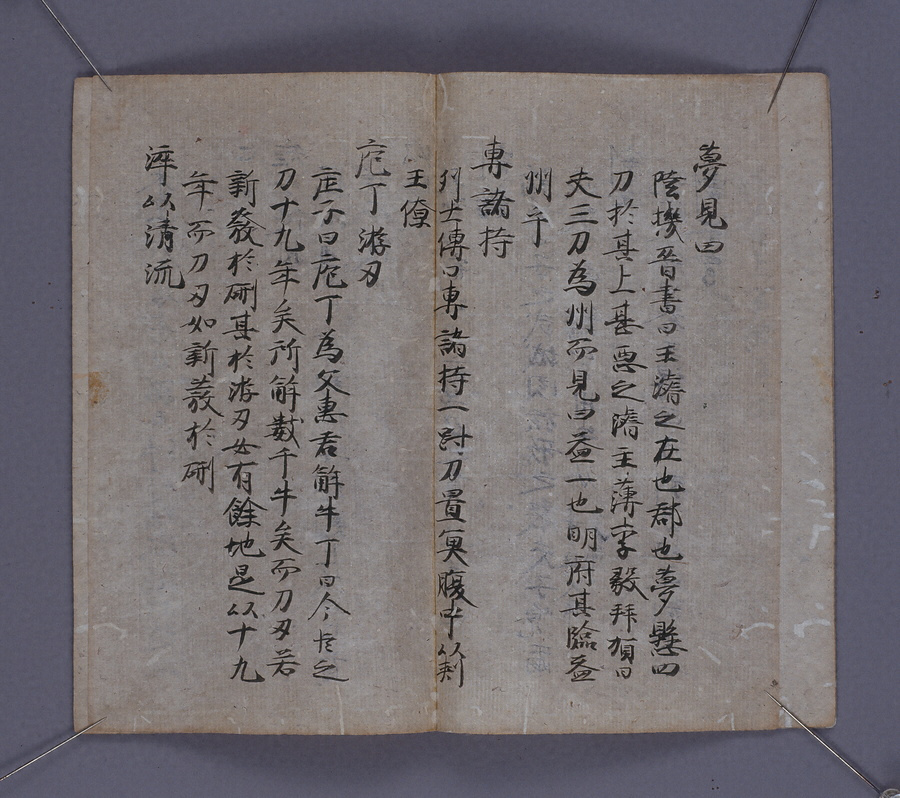 夢見四
陰機晉書曰王濬之在也郡也夢懸四
刀於其上甚悪之濬主薄李毅拜賀曰
夫三刀為州而見四益一也明府其臨益
州乎
專諸持
列士傳曰專諸持一尉刀置魚腹中以刺
王僚
庖丁游刃
庄子曰庖丁為文惠君解牛丁曰今臣之
刀十九年矣所解數千牛矣而刀刃若
新發於硎甚於游刃女有餘地是以十九
年而刀刃如新發於硎
淬以清流